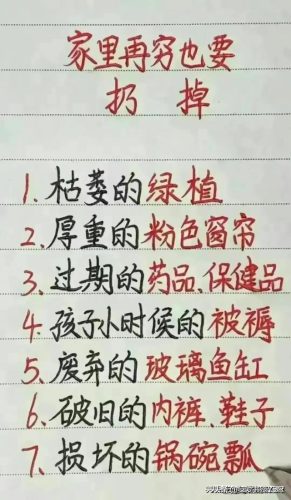 家里再穷也要
扔掉
1.枯萎的绿植
2.厚重的粉色窗帘
3.过期的药品、保健品
4.孩子小时候的被褥
5.废弃的玻璃鱼缸
6.破旧的内裤、鞋子
7.损坏的锅碗瓢